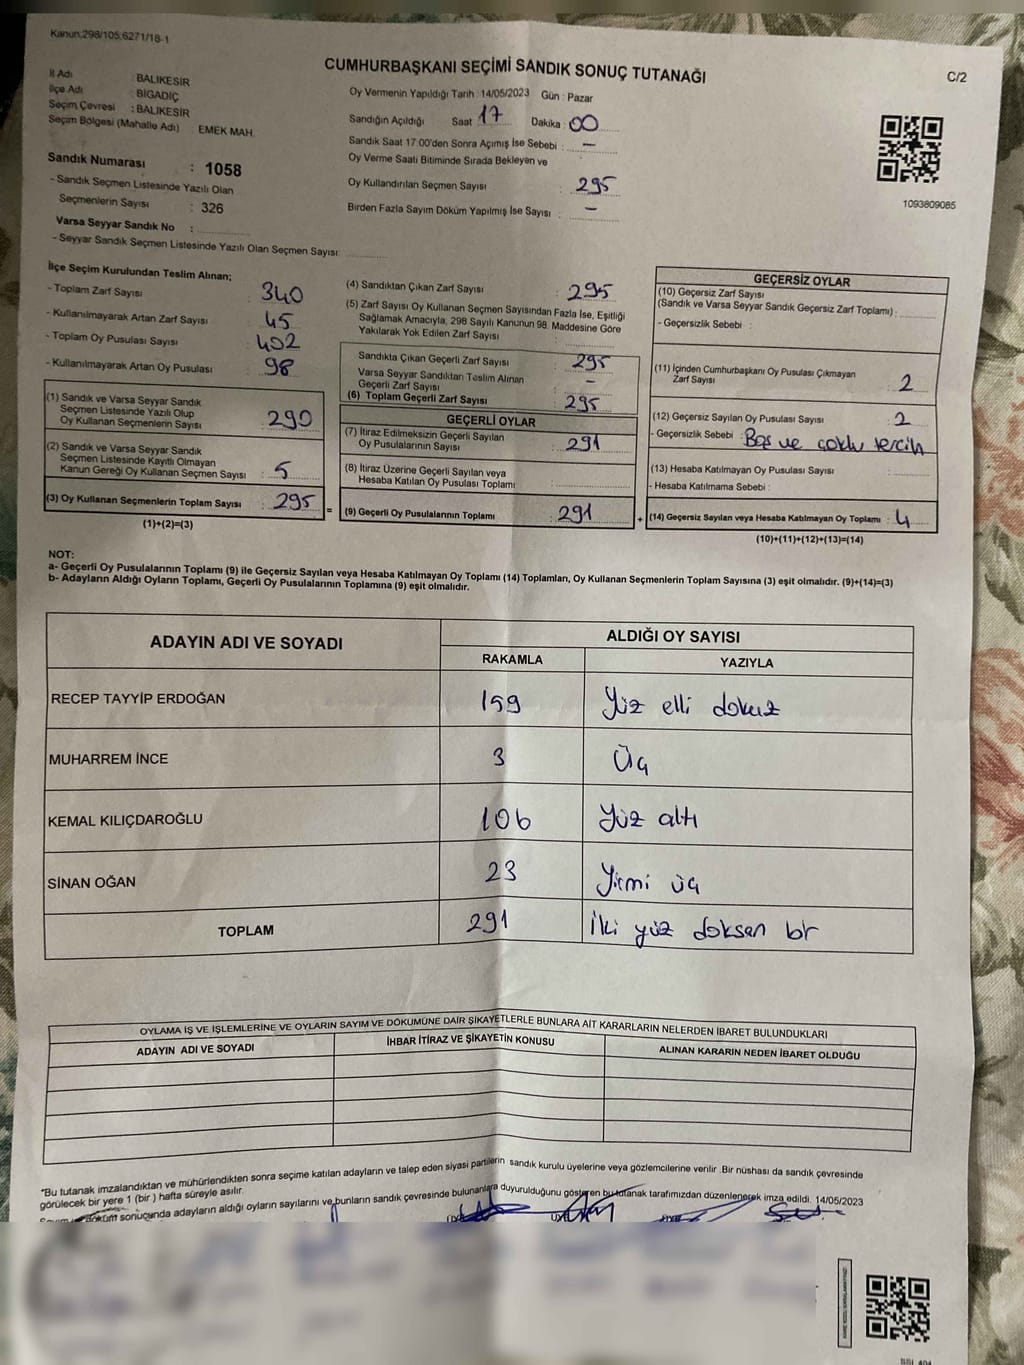 Kanun,298/105,6271/18-1
CUMHURBAŞKANI SEÇİMİ SANDIK SONUÇ TUTANAĞI
C/2
İl Adı : BALIKESİR
İlçe Adı : BİGADİÇ
Seçim Çevresi : BALIKESİR
Seçim Bölgesi (Mahalle Adı) : EMEK MAH.
Sandık Numarası : 1058
- Sandık Seçmen Listesinde Yazılı Olan
Seçmenlerin Sayısı : 326
Varsa Seyyar Sandık No :
- Seyyar Sandık Seçmen Listesinde Yazılı Olan Seçmen Sayısı:
Oy Vermenin Yapıldığı Tarih : 14/05/2023 Gün : Pazar
Sandığın Açıldığı Saat 17 Dakika : 00
Sandık Saat 17:00'den Sonra Açımış İse Sebebi : -
Oy Verme Saati Bitiminde Sırada Bekleyen ve
Oy Kullandırılan Seçmen Sayısı : 295
Birden Fazla Sayım Döküm Yapılmış İse Sayısı : -
1093809085
İlçe Seçim Kurulundan Teslim Alınan;
- Toplam Zarf Sayısı : 340
- Kullanılmayarak Artan Zarf Sayısı : 45
- Toplam Oy Pusulası Sayısı : 402
- Kullanılmayarak Artan Oy Pusulası : 98
(1) Sandık ve Varsa Seyyar Sandık
Seçmen Listesinde Yazılı Olup
Oy Kullanan Seçmenlerin Sayısı : 290
(2) Sandık ve Varsa Seyyar Sandık
Seçmen Listesinde Kayıtlı Olmayan
Kanun Gereği Oy Kullanan Seçmen Sayısı : 5
(3) Oy Kullanan Seçmenlerin Toplam Sayısı : 295 =
(1)+(2)=(3)
(4) Sandıktan Çıkan Zarf Sayısı : 295
(5) Zarf Sayısı Oy Kullanan Seçmen Sayısından Fazla İse, Eşitliği
Sağlamak Amacıyla, 298 Sayılı Kanunun 98. Maddesine Göre
Yakılarak Yok Edilen Zarf Sayısı :
Sandıkta Çıkan Geçerli Zarf Sayısı : 295
Varsa Seyyar Sandıktan Teslim Alınan
Geçerli Zarf Sayısı : -
(6) Toplam Geçerli Zarf Sayısı : 295
GEÇERLİ OYLAR
(7) İtiraz Edilmeksizin Geçerli Sayılan
Oy Pusulalarının Sayısı : 291
(8) İtiraz Üzerine Geçerli Sayılan veya
Hesaba Katılan Oy Pusulası Toplamı :
(9) Geçerli Oy Pusulalarının Toplamı : 291 +
GEÇERSİZ OYLAR
(10) Geçersiz Zarf Sayısı
(Sandık ve Varsa Seyyar Sandık Geçersiz Zarf Toplamı) :
- Geçersizlik Sebebi :
(11) İçinden Cumhurbaşkanı Oy Pusulası Çıkmayan
Zarf Sayısı : 2
(12) Geçersiz Sayılan Oy Pusulası Sayısı : 2
- Geçersizlik Sebebi : Boş ve çoklu tercih
(13) Hesaba Katılmayan Oy Pusulası Sayısı :
- Hesaba Katılmama Sebebi :
(14) Geçersiz Sayılan veya Hesaba Katılmayan Oy Toplamı : 4
(10)+(11)+(12)+(13)=(14)
NOT:
a- Geçerli Oy Pusulalarının Toplamı (9) ile Geçersiz Sayılan veya Hesaba Katılmayan Oy Toplamı (14) Toplamları, Oy Kullanan Seçmenlerin Toplam Sayısına (3) eşit olmalıdır. (9)+(14)=(3)
b- Adayların Aldığı Oyların Toplamı, Geçerli Oy Pusulalarının Toplamına (9) eşit olmalıdır.
ADAYIN ADI VE SOYADI ALDIĞI OY SAYISI
RAKAMLA YAZIYLA
RECEP TAYYİP ERDOĞAN 159 Yüz elli dokuz
MUHARREM İNCE 3 Üç
KEMAL KILIÇDAROĞLU 106 Yüz altı
SİNAN OĞAN 23 Yirmi üç
TOPLAM 291 İki yüz doksan bir
OYLAMA İŞ VE İŞLEMLERİNE VE OYLARIN SAYIM VE DÖKÜMÜNE DAİR ŞİKAYETLERLE BUNLARA AİT KARARLARIN NELERDEN İBARET BULUNDUKLARI
ADAYIN ADI VE SOYADI İHBAR İTİRAZ VE ŞİKAYETİN KONUSU ALINAN KARARIN NEDEN İBARET OLDUĞU
*Bu tutanak imzalandıktan ve mühürlendikten sonra seçime katılan adayların ve talep eden siyasi partilerin sandık kurulu üyelerine veya gözlemcilerine verilir. Bir nüshası da sandık çevresinde
görülecek bir yere 1 (bir ) hafta süreyle asılır.
döküm sonucunda adayların aldığı oyların sayılarını ve bunların sandık çevresinde bulunanlara duyurulduğunu gösteren bu tutanak tarafımızdan düzenlenerek imza edildi. 14/05/2023